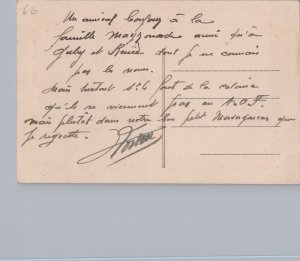 66
Un amical bonjour à la
famille ainsi qu'à
Gaby et Renée dont je ne connais
pas le nom.
Mais surtout s'ils font de la colonie
qu'ils ne viennent pas en A.O.F.
mais plutôt dans notre bon petit Madagascar que
je regrette.